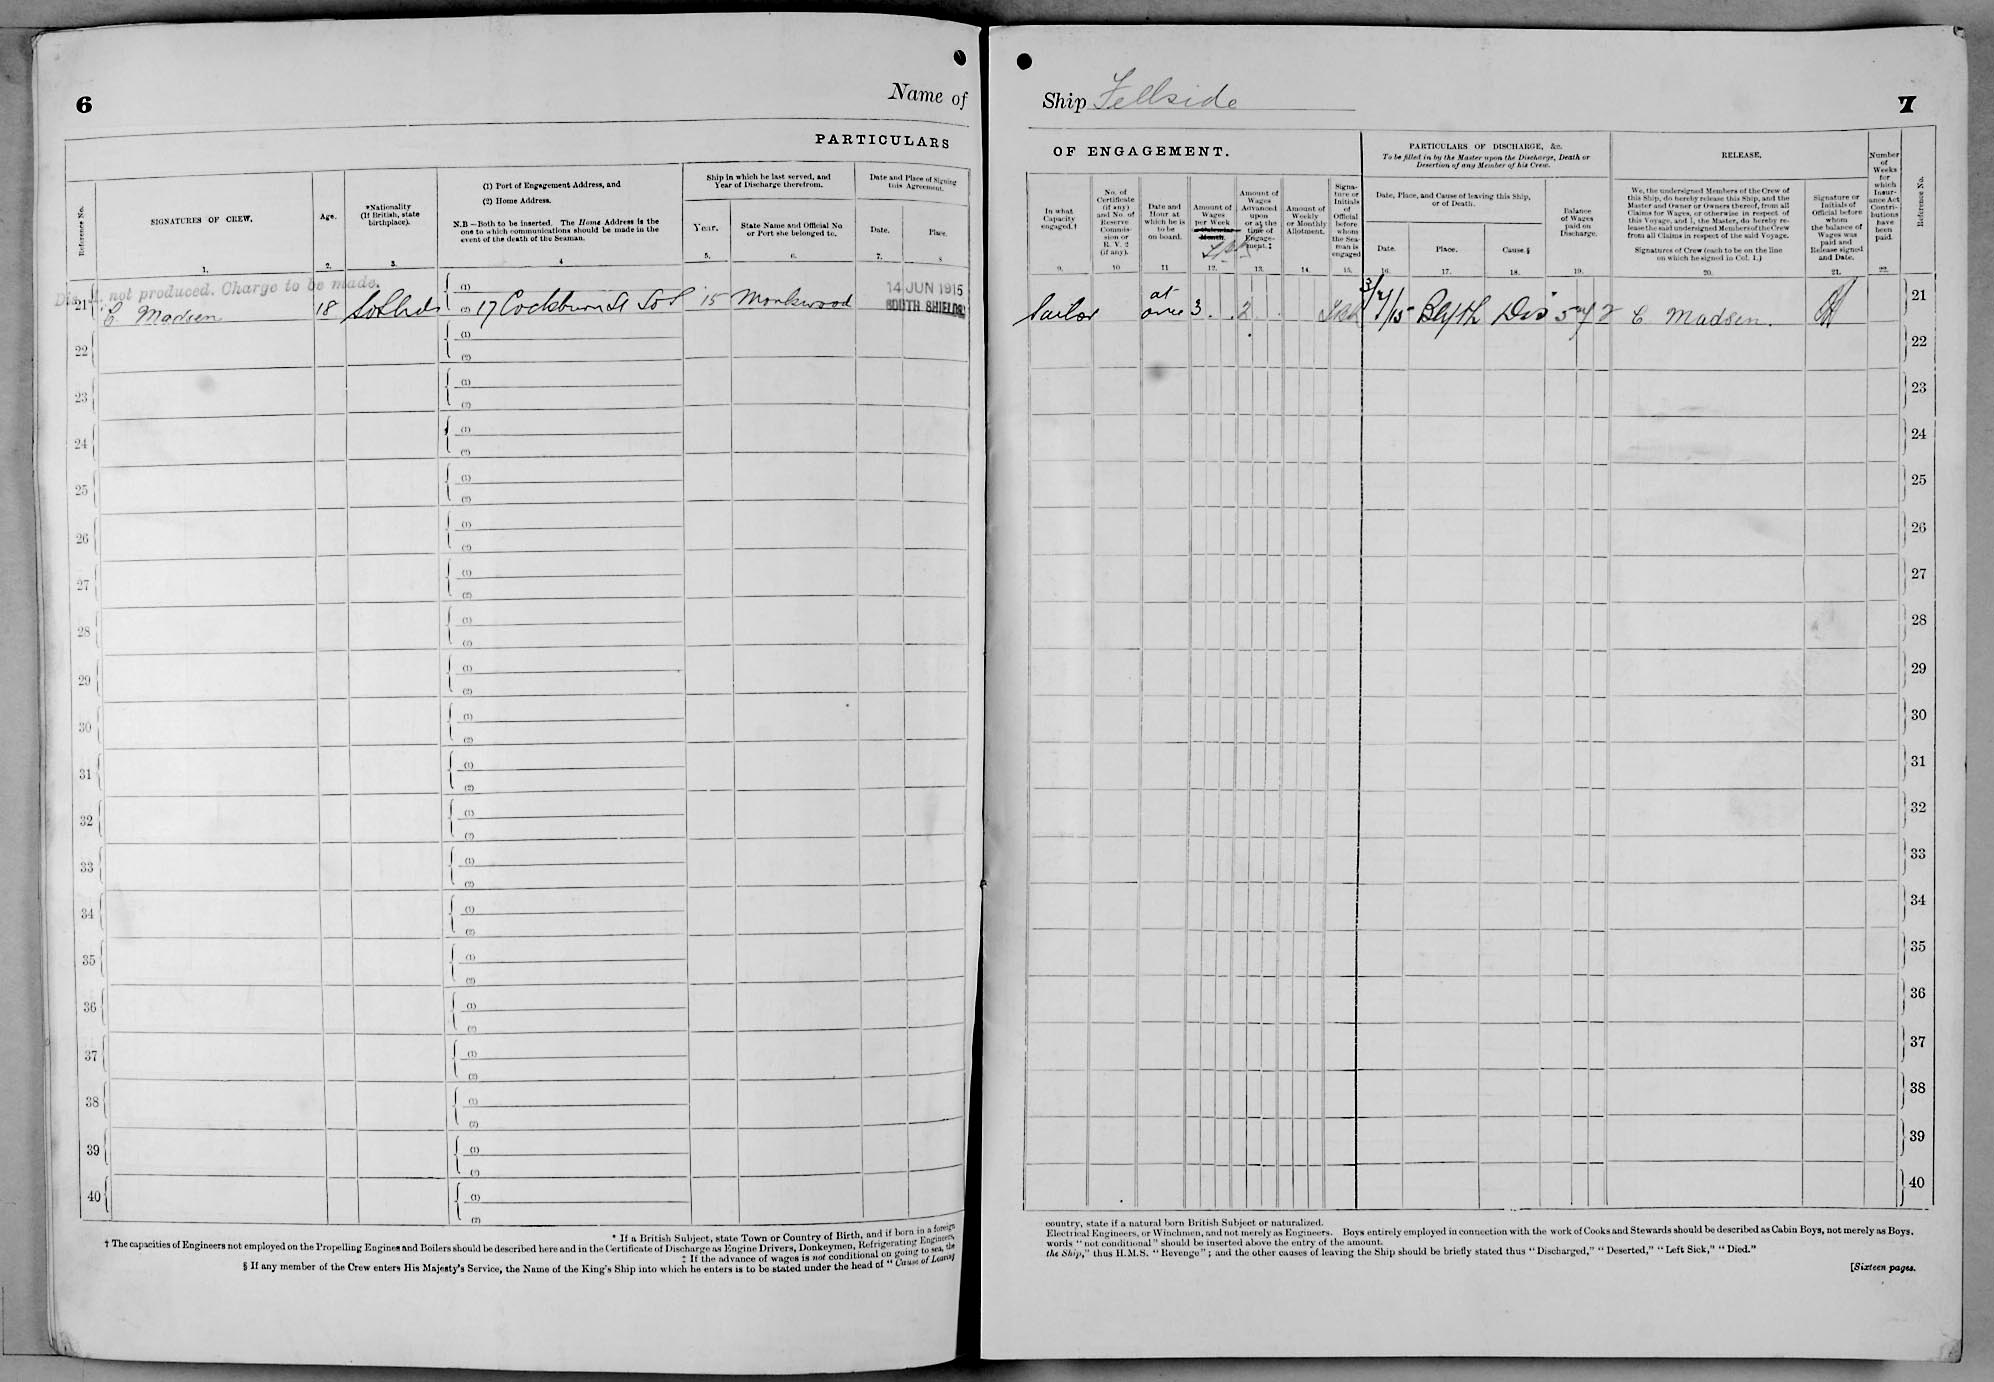 6
Name of
PARTICULARS
Reference No.
SIGNATURES OF CREW.
Age.
*Nationality
(If British, state
birthplace).
(1) Port of Engagement Address, and
(2) Home Address.
N.B.—Both to be inserted. The Home Address is the
one to which communications should be made in the
event of the death of the Seaman.
Ship in which he last served, and
Year of Discharge therefrom.
Year.
State Name and Official No.
or Port she belonged to.
Date and Place of Signing
this Agreement.
Date.
Place.
1.
2.
3.
4
5.
6.
7.
8
not produced. Charge to be made.
21
C Madsen
18
So Shds
(1)
(2) 17 Cockburn St So S
15
Monkswood
14 JUN 1915
SOUTH SHIELDS
22
(1)
(2)
23
(1)
(2)
24
(1)
(2)
25
(1)
(2)
26
(1)
(2)
27
(1)
(2)
28
(1)
(2)
29
(1)
(2)
30
(1)
(2)
31
(1)
(2)
32
(1)
(2)
33
(1)
(2)
34
(1)
(2)
35
(1)
(2)
36
(1)
(2)
37
(1)
(2)
38
(1)
(2)
39
(1)
(2)
40
(1)
(2)
* If a British Subject, state Town or Country of Birth, and if born in a foreign
† The capacities of Engineers not employed on the Propelling Engines and Boilers should be described here and in the Certificate of Discharge as Engine Drivers, Donkeymen, Refrigerating Engineers,
‡ If the advance of wages is not conditional on going to sea, the
§ If any member of the Crew enters His Majesty's Service, the Name of the King's Ship into which he enters is to be stated under the head of "Cause of Leaving
Ship Fellside
7
OF ENGAGEMENT.
PARTICULARS OF DISCHARGE, &c.
To be filled in by the Master upon the Discharge, Death or
Desertion of any Member of his Crew.
RELEASE.
In what
Capacity
engaged.†
No. of
Certificate
(if any)
and No. of
Reserve
Commis-
sion or
R. V. 2
(if any).
Date and
Hour at
which he is
to be
on board.
Amount of
Wages
per Week
or Calendar
Month.
Amount of
Wages
Advanced
upon
or at the
time of
Engage-
ment.‡
Amount of
Weekly
or Monthly
Allotment.
Signa-
ture or
Initials
of
Official
before
whom
the Sea-
man is
engaged
Date, Place, and Cause of leaving this Ship,
or of Death.
Date.
Place.
Cause.§
Balance
of Wages
paid on
Discharge.
We, the undersigned Members of the Crew of
this Ship, do hereby release this Ship, and the
Master and Owner or Owners thereof, from all
Claims for Wages, or otherwise in respect of
this Voyage, and I, the Master, do hereby re-
lease the said undersigned Members of the Crew
from all Claims in respect of the said Voyage.
Signatures of Crew (each to be on the line
on which he signed in Col. 1.)
Signature or
Initials of
Official before
whom
the balance of
Wages was
paid and
Release signed
and Date.
Number
of
Weeks
for
which
Insur-
ance Act
Contri-
butions
have
been
paid.
Reference No.
9.
10
11
12.
13.
14.
15.
16.
17.
18.
19.
20.
21.
22.
Sailor
at
once
3
2
3/7/15
Blyth
Dis
C Madsen.
21
22
23
24
25
26
27
28
29
30
31
32
33
34
35
36
37
38
39
40
country, state if a natural born British Subject or naturalized.
Electrical Engineers, or Winchmen, and not merely as Engineers. Boys entirely employed in connection with the work of Cooks and Stewards should be described as Cabin Boys, not merely as Boys.
words "not conditional" should be inserted above the entry of the amount.
the Ship," thus H.M.S. "Revenge"; and the other causes of leaving the Ship should be briefly stated thus "Discharged," "Deserted," "Left Sick," "Died."
[Sixteen pages.